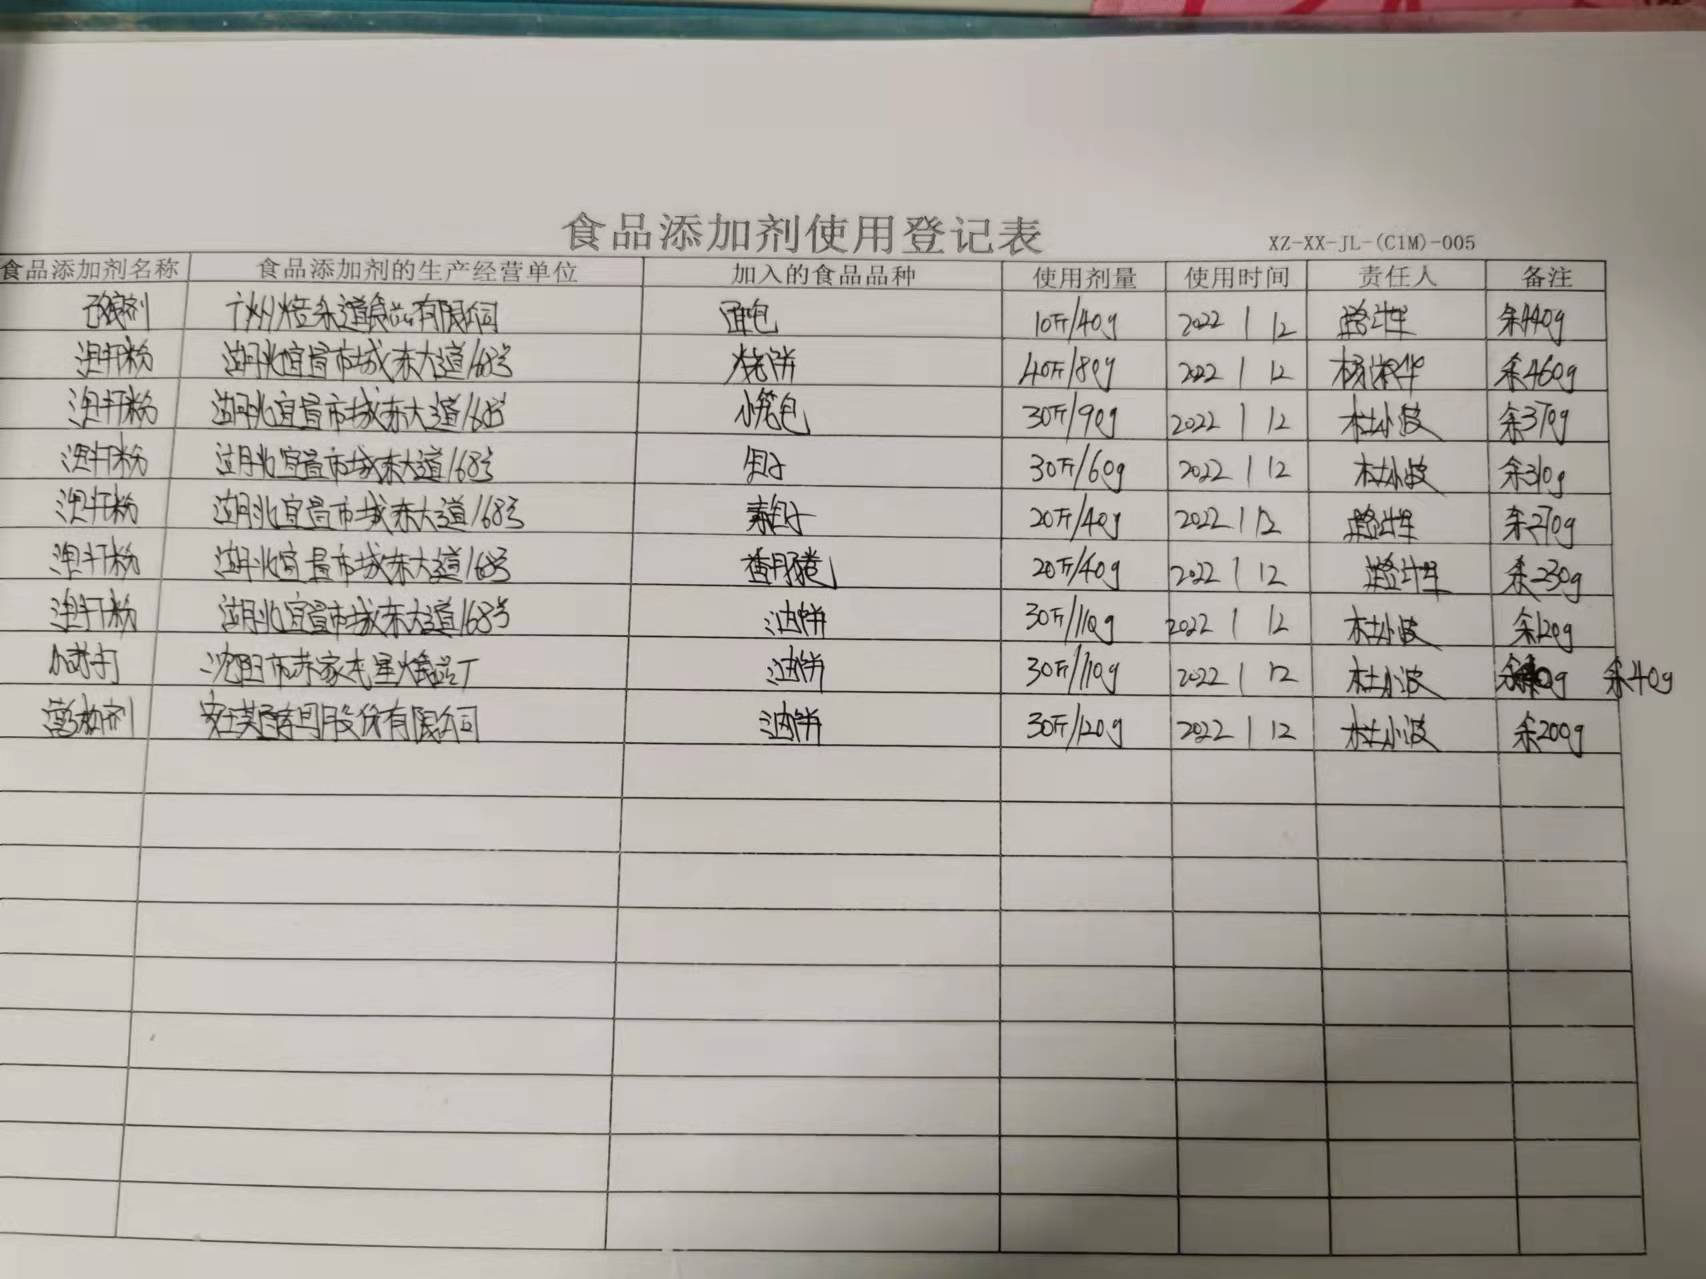 食品添加剂使用登记表
XZ-XX-JL-(C1M)-005
食品添加剂名称 食品添加剂的生产经营单位 加入的食品品种 使用剂量 使用时间 责任人 备注
改良剂 广州焙乐道食品有限公司 面包 10斤/40g 2022 1 12 余440g
泡打粉 湖北宜昌市城东大道168号 烧饼 40斤/80g 2022 1 12 余460g
泡打粉 湖北宜昌市城东大道168号 小笼包 30斤/90g 2022 1 12 杜小波 余370g
泡打粉 湖北宜昌市城东大道168号 30斤/60g 2022 1 12 杜小波 余310g
泡打粉 湖北宜昌市城东大道168号 20斤/40g 2022 1 12 余270g
泡打粉 湖北宜昌市城东大道168号 20斤/40g 2022 1 12 余230g
泡打粉 湖北宜昌市城东大道168号 油饼 30斤/110g 2022 1 12 杜小波 余120g
小苏打 沈阳市 油饼 30斤/110g 2022 1 12 杜小波 余40g
安琪酵母股份有限公司 油饼 30斤/120g 2022 1 12 杜小波 余200g